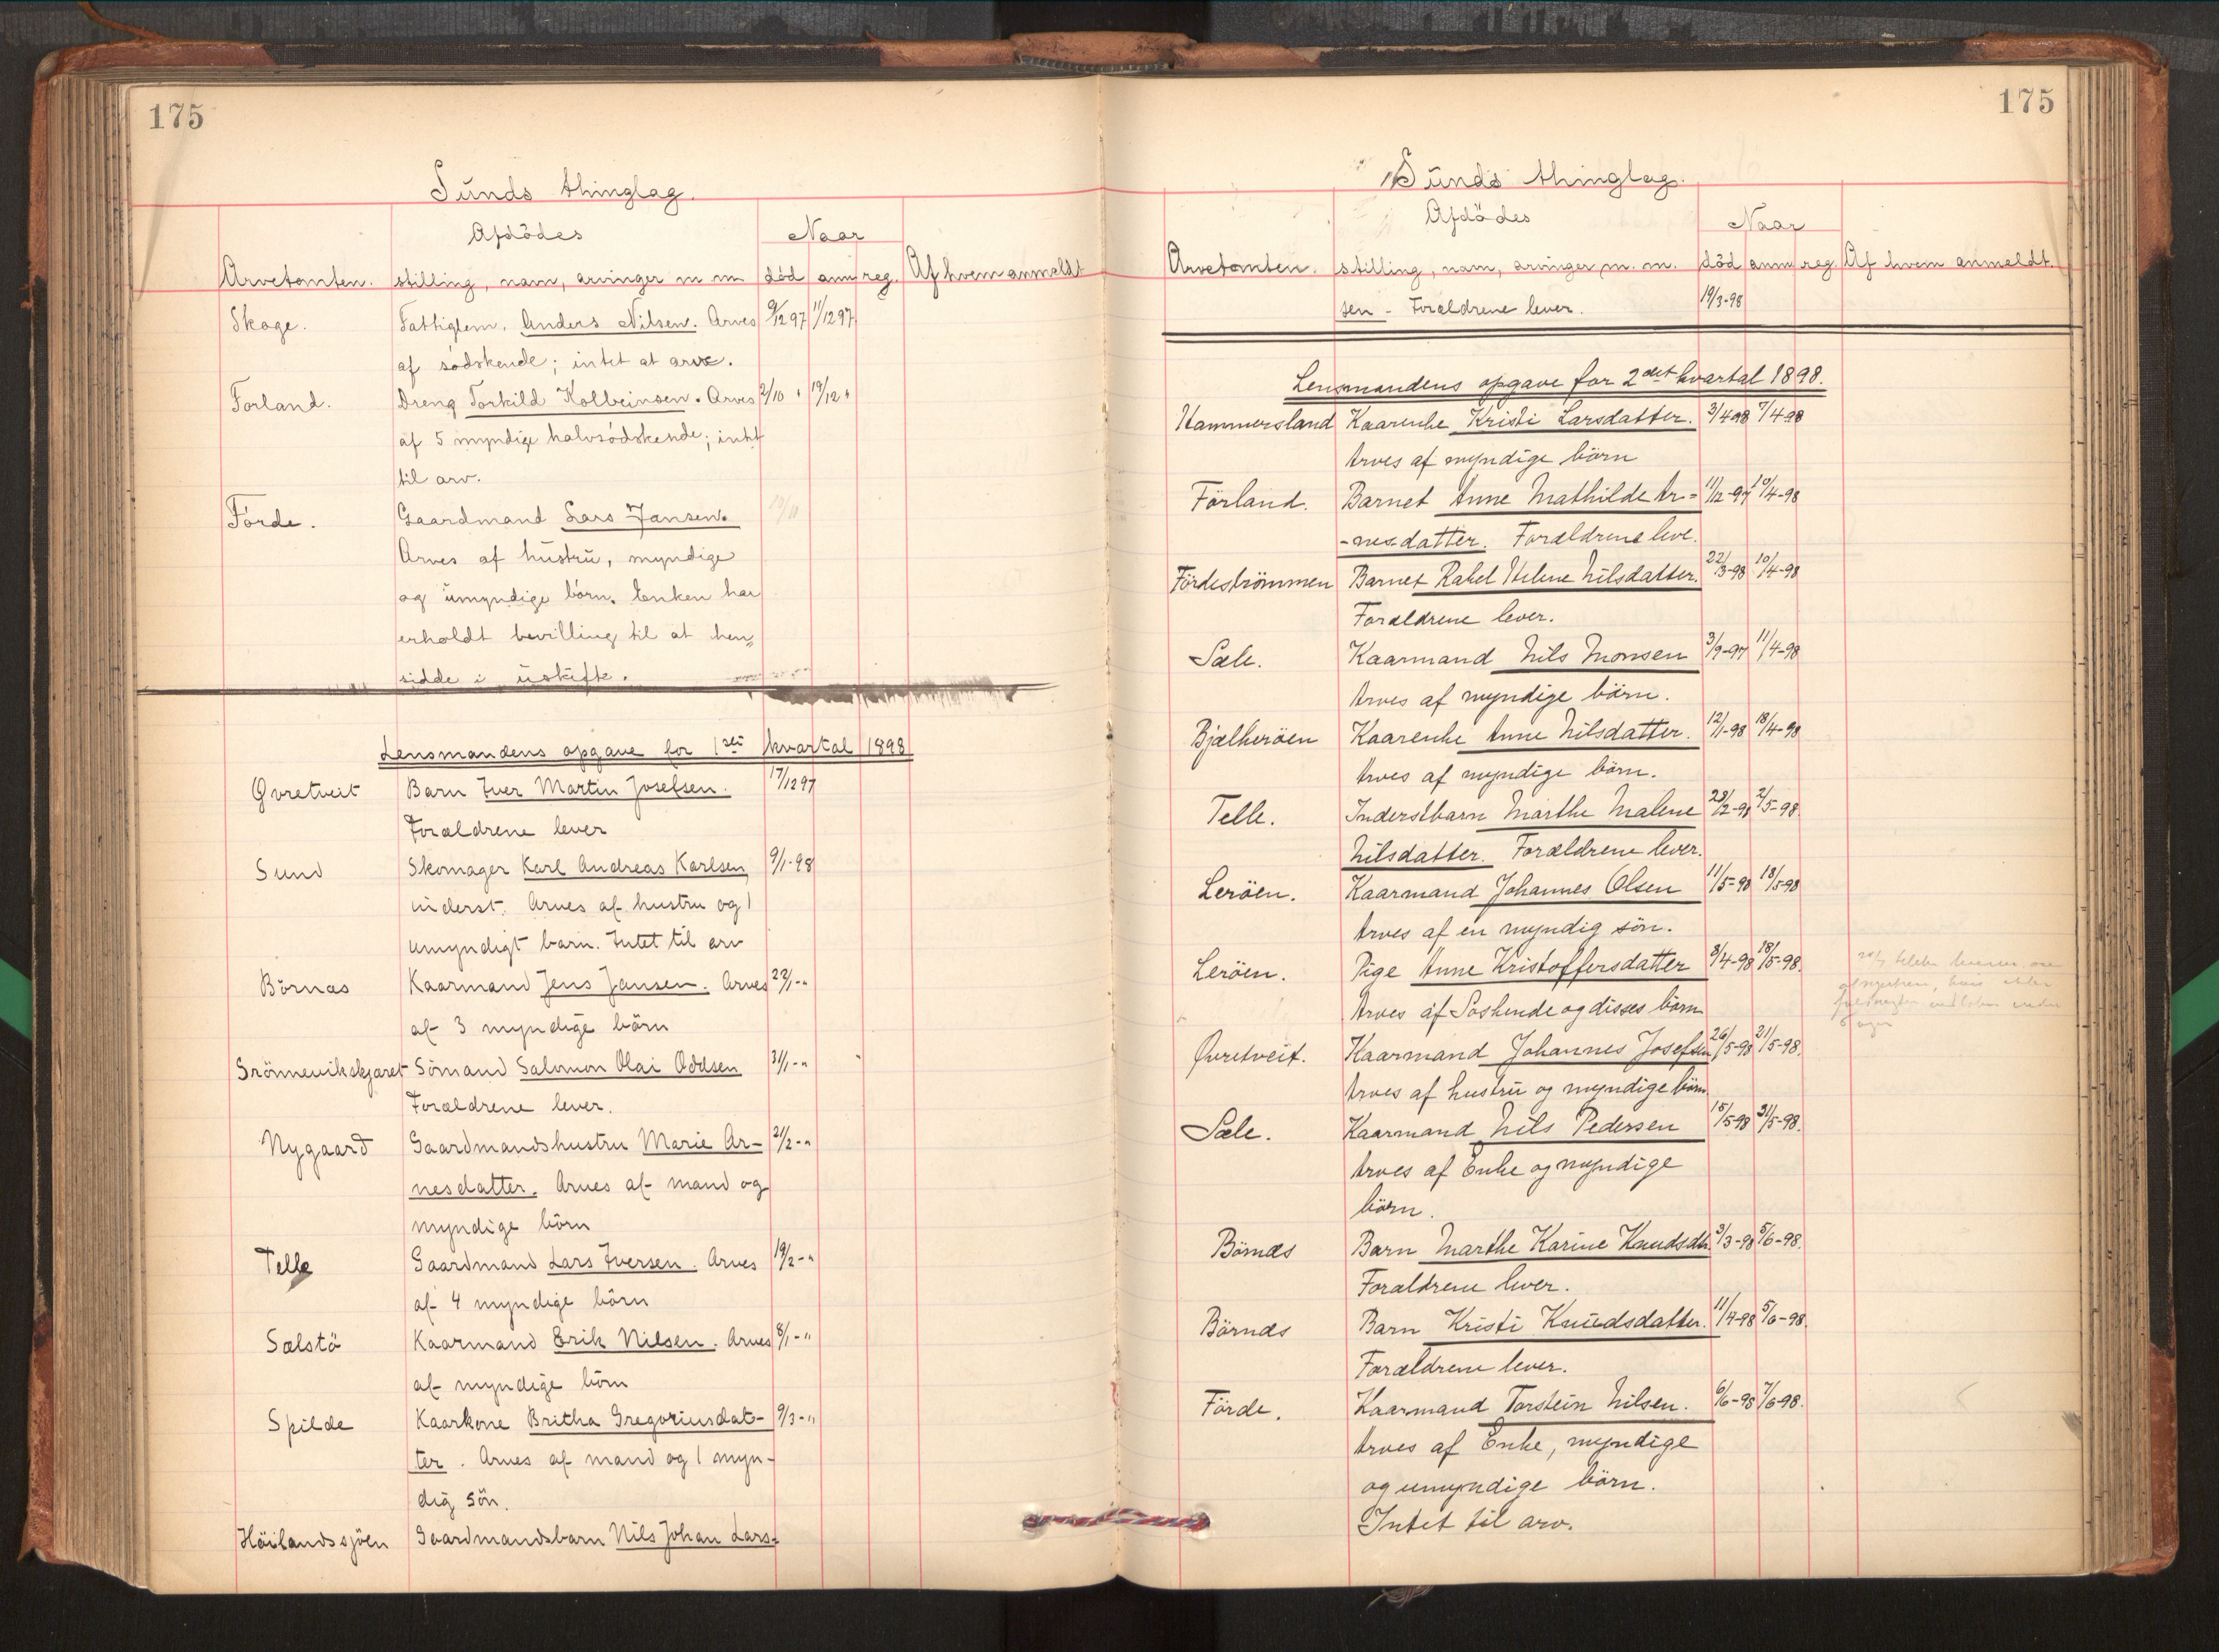 175
Sunds thinglag.
Afdödes
Naar
Arvetomten. stilling, navn, arvinger m m död anm reg. Af hvem anmeldt
Skoge. Fattiglem, Anders Nilsen. Arves 9/12 97 11/12 97.
af södskende; intet at arve.
Forland. Dreng Torkild Kolbeinsen. Arves 2/10 " 19/12 "
af 5 myndige halvsödskende; intet
til arv.
Förde. Gaardmand Lars Jansen.
Arves af hustru, myndige
og umyndige börn. Enken har
erholdt bevilling til at hen„
sidde i uskifte.
Lensmandens opgave for 1ste kvartal 1898
Qvretveit Barn Iver Martin Josefsen. 17/12 97
Forældrene lever
Sund Skomager Karl Andreas Karlsen 9/1-98
inderst. Arves af hustru og 1
umyndigt barn. Intet til arv
Börnæs Kaarmand Jens Jansen. Arves 22/1-"
af 3 myndige börn
Grönnevikskjæret Sömand Salomon Olai Oddsen 31/1-"
Forældrene lever.
Nygaard Gaardmandshustru Marie Ar- 21/2-"
nesdatter. Arves af mand og
myndige börn
Telle Gaardmand Lars Iversen. Arves 19/2-"
af 4 myndige börn
Sælstö Kaarmand Erik Nilsen. Arves 8/1-"
af myndige börn
Spilde Kaarkone Britha Gregoriusdat- 9/3-"
ter. Arves af mand og 1 myn-
dig sön.
Höilandssjöen Gaardmandsbarn Nils Johan Lars-
175
Sunds thinglag.
Afdödes
Naar
Arvetomten. stilling, navn, arvinger m. m. död anm reg. Af hvem anmeldt.
sen - Forældrene lever. 19/3-98
Lensmandens opgave for 2det kvartal 1898.
Hammersland Kaarenke Kristi Larsdatter. 3/4 98 7/4-98
Arves af myndige börn
Förland. Barnet Anne Mathilde Ar= 11/12-97 10/4-98
-nesdatter. Forældrene leve.
Fördeströmmen Barnet Rakel Helene Nilsdatter. 22/3-98 10/4-98
Forældrene lever.
Sæle. Kaarmand Nils Monsen 3/9-97 11/4-98
Arves af myndige börn.
Bjælkeröen Kaarenke Anne Nilsdatter. 12/1-98 18/4-98
Arves af myndige börn.
Telle. Inderstbarn Marthe Malene 28/2-98 2/5-98.
Nilsdatter. Forældrene lever.
Leröen. Kaarmand Johannes Olsen 11/5-98 18/5-98
Arves af en myndig sön.
Leröen. Pige Anne Kristoffersdatter 8/4-98 18/5-98.
Arves af Söskende og disses börn
Qvretveit. Kaarmand Johannes Josefsen 26/5-98 21/5-98.
Arves af hustru og myndige börn.
Sæle. Kaarmand Nils Pedersen 15/5-98 31/5-98.
Arves af Enke og myndige
börn.
Börnæs Barn Marthe Karine Knudsdtr. 3/3-98 5/6-98.
Forældrene lever.
Börnæs Barn Kristi Knudsdatter. 11/4-98 5/6-98.
Forældrene lever.
Förde. Kaarmand Torstein Nilsen. 6/6-98 7/6-98.
Arves af Enke, myndige
og umyndige börn.
Intet til arv.